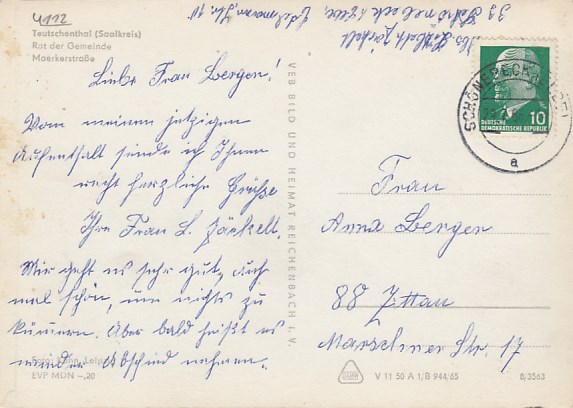 4112
Teutschenthal (Saalkreis)
Rat der Gemeinde
Maerkerstraße
Liebe Frau Bergen!
Vom meinen jetzigen
Aufenthalt sende ich Ihnen
recht herzliche Grüße
Ihre Frau L. Jäckelt.
Mir geht es sehr gut, auch
mal schön, um nichts zu
kümmern. Aber bald heißt es
wieder Abschied nehmen.
Leipzig
EVP MDN –,20
VEB BILD UND HEIMAT REICHENBACH i. V.
Abs.
33 Schönebeck
SCHÖNEBECK (ELBE) 1
a
10
DEUTSCHE
DEMOKRATISCHE REPUBLIK
Frau
Anna Bergen
88 Zittau
Marschner Str. 17
V 11 50 A 1/B 944/65
8/3563